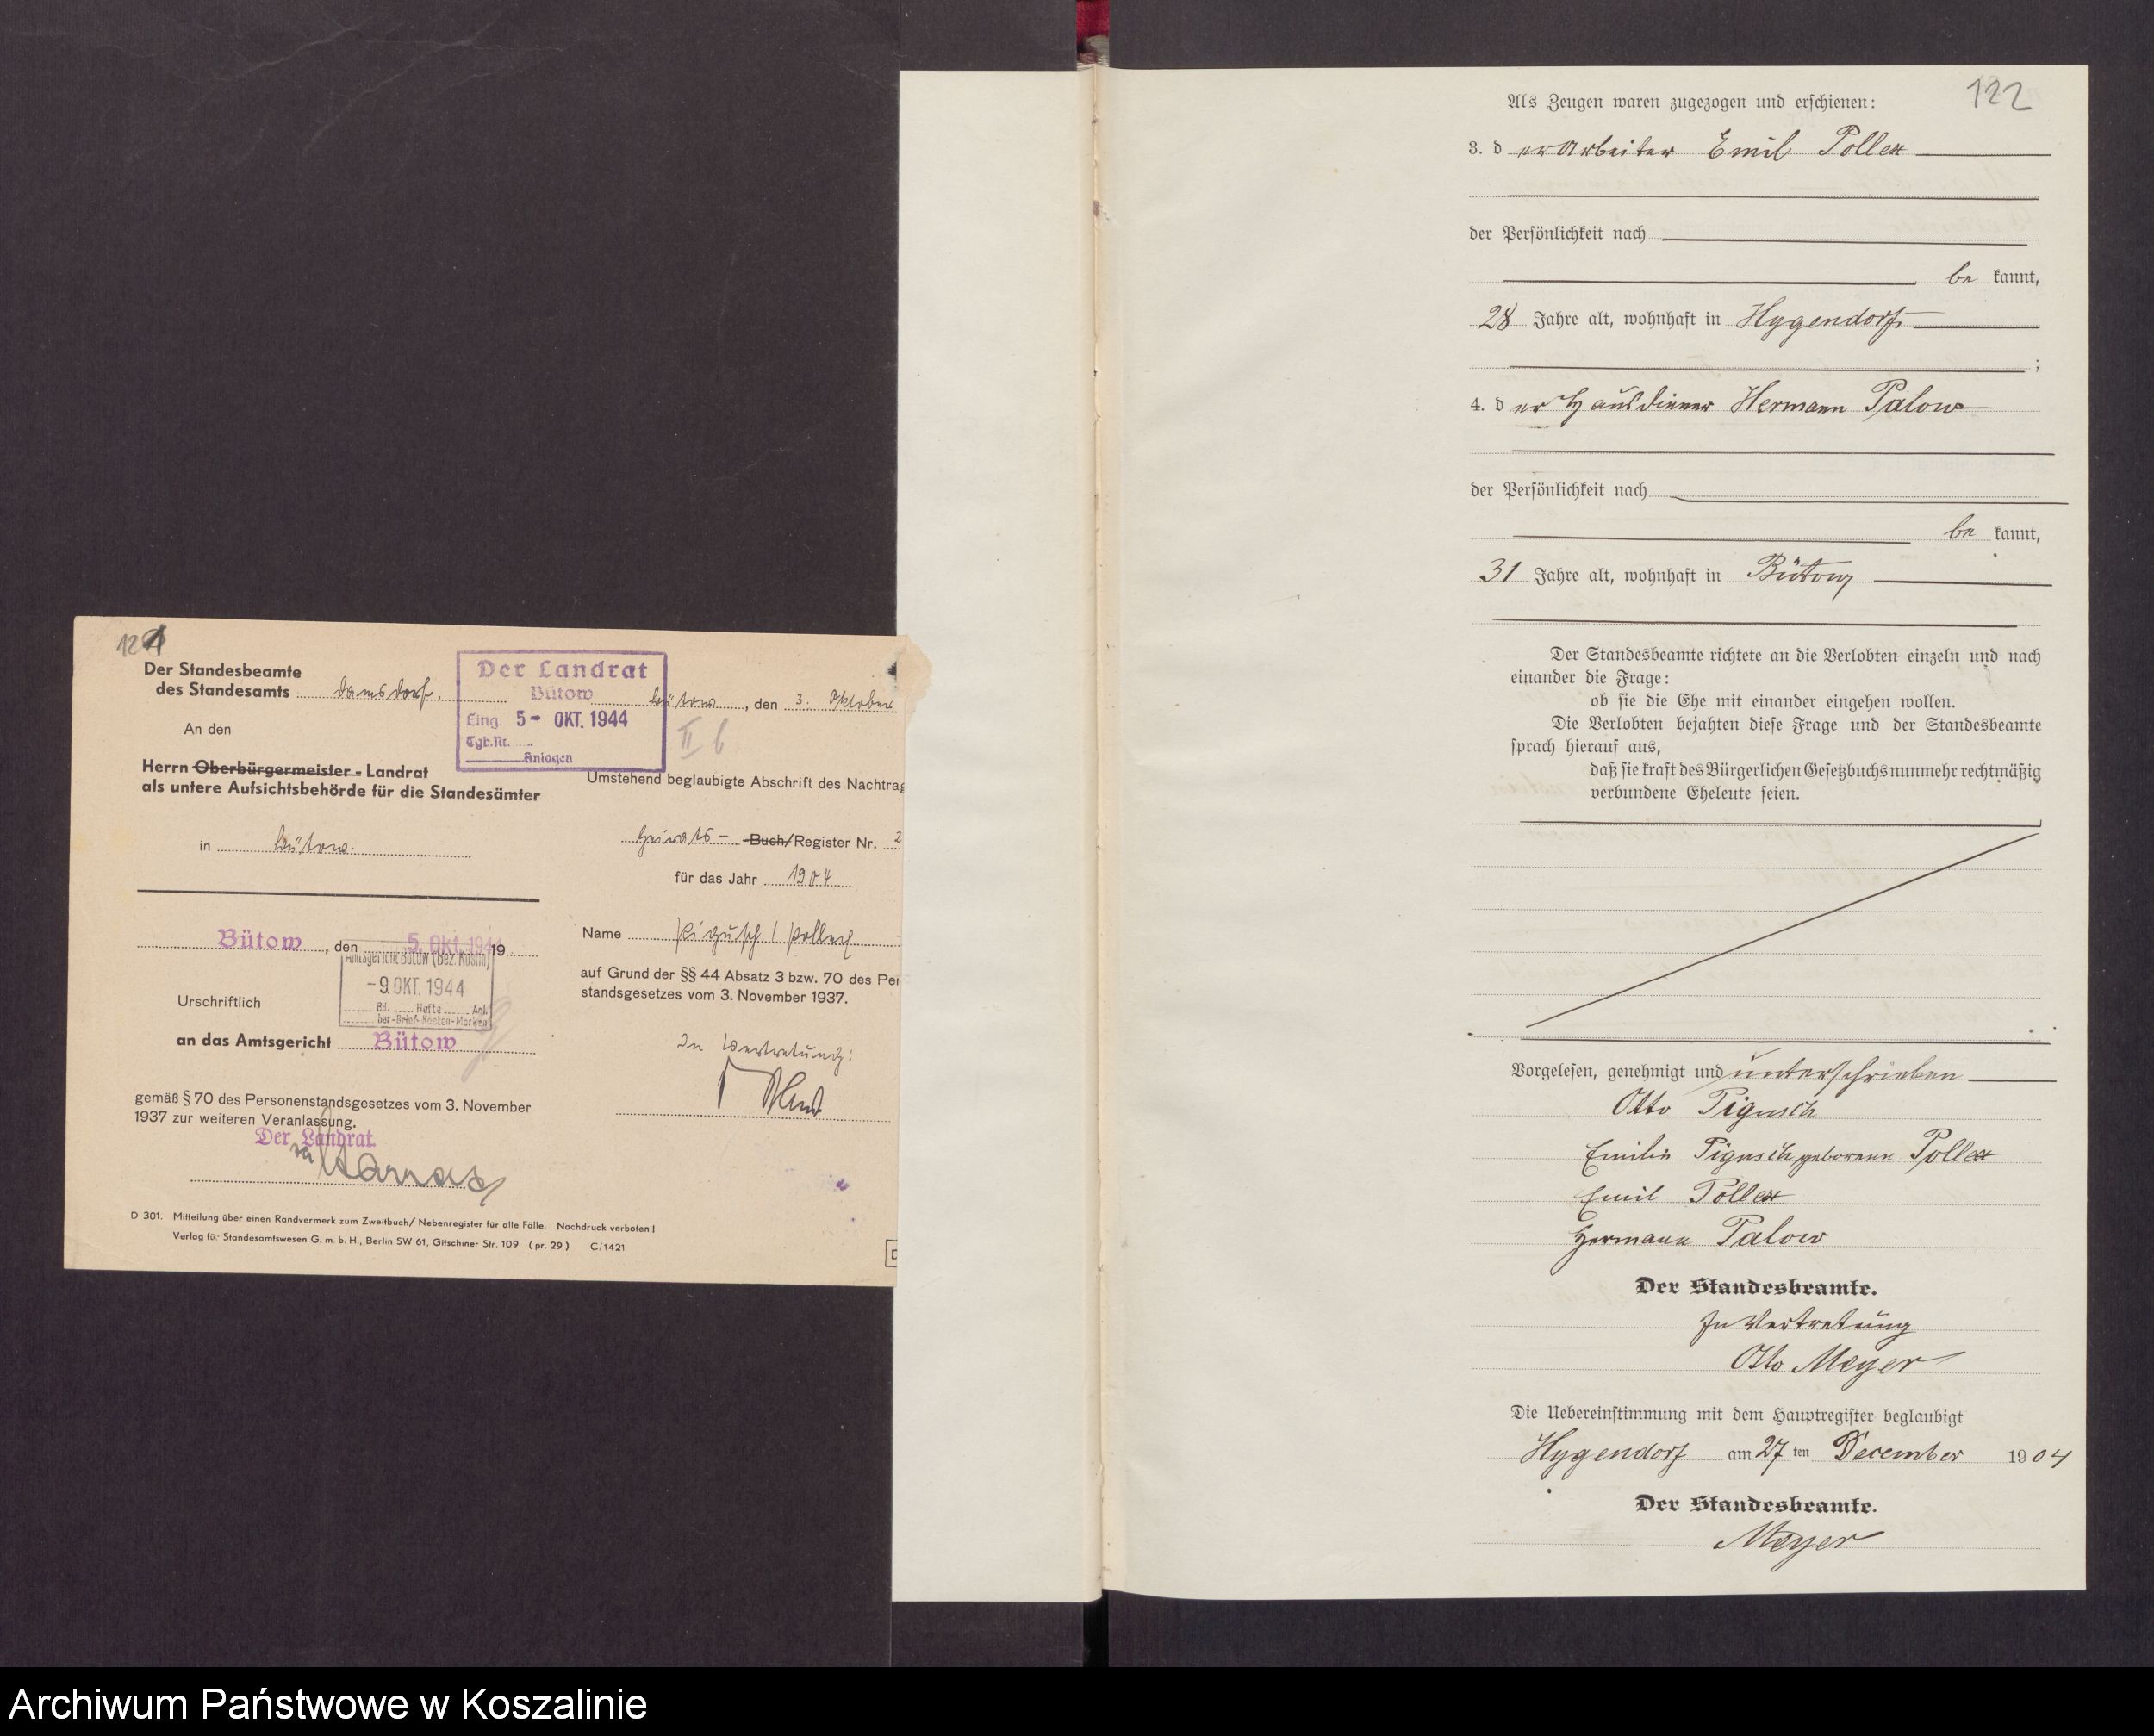 121
Der Standesbeamte
des Standesamts Damsdorf.
Der Landrat
Bütow
Eing. 5- OKT. 1944
Tgb.Nr.
Anlagen
Bütow, den 3. Oktober
II b
An den
Herrn Oberbürgermeister - Landrat
als untere Aufsichtsbehörde für die Standesämter
in Bütow.
Umstehend beglaubigte Abschrift des Nachtrag
Heirats- Buch/Register Nr. 2
für das Jahr 1904
Name Pigusch / Pollex
auf Grund der §§ 44 Absatz 3 bzw. 70 des Per
standsgesetzes vom 3. November 1937.
In Vertretung:
Bütow, den 5. Okt. 1944 19
Amtsgericht Bütow (Bez. Köslin)
-9. OKT. 1944
Bd. Hefte Anl.
bar-Brief-Kosten-Marken
Urschriftlich
an das Amtsgericht Bütow
gemäß § 70 des Personenstandsgesetzes vom 3. November
1937 zur weiteren Veranlassung.
Der Landrat
D 301. Mitteilung über einen Randvermerk zum Zweitbuch/ Nebenregister für alle Fälle. Nachdruck verboten !
Verlag für Standesamtswesen G. m. b. H., Berlin SW 61, Gitschiner Str. 109 (pr. 29) C/1421
122
Als Zeugen waren zugezogen und erschienen:
3. der Arbeiter Emil Pollex
der Persönlichkeit nach
be kannt,
28 Jahre alt, wohnhaft in Hygendorf
;
4. der Hausdiener Hermann Palow
der Persönlichkeit nach
be kannt,
31 Jahre alt, wohnhaft in Bütow
Der Standesbeamte richtete an die Verlobten einzeln und nach
einander die Frage:
ob sie die Ehe mit einander eingehen wollen.
Die Verlobten bejahten diese Frage und der Standesbeamte
sprach hierauf aus,
daß sie kraft des Bürgerlichen Gesetzbuchs nunmehr rechtmäßig
verbundene Eheleute seien.
Vorgelesen, genehmigt und unterschrieben
Otto Pigusch
Emilie Pigusch geborene Pollex
Emil Pollex
Hermann Palow
Der Standesbeamte.
In Vertretung
Otto Meyer
Die Uebereinstimmung mit dem Hauptregister beglaubigt
Hygendorf am 27 ten December 1904
Der Standesbeamte.
Meyer
Archiwum Państwowe w Koszalinie